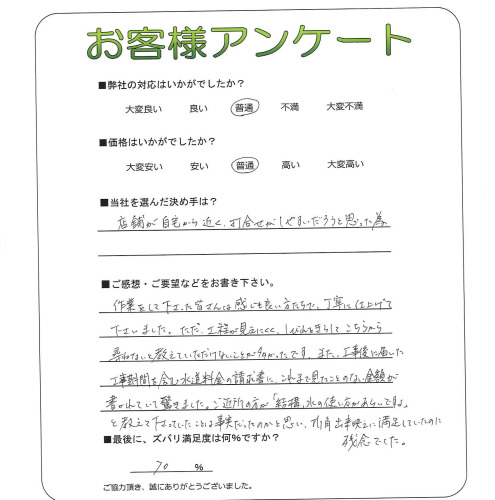 お客様アンケート
■弊社の対応はいかがでしたか?
大変良い 良い 普通 不満 大変不満
■価格はいかがでしたか?
大変安い 安い 普通 高い 大変高い
■当社を選んだ決め手は?
店舗が自宅から近く、打合せがしやすいだろうと思った為
■ご感想・ご要望などをお書き下さい。
作業をして下さった皆さんは感じも良い方たちで、丁寧に仕上げて
下さいました。ただ、工程が見えにくく、こちらから
尋ねないと教えていただけないことが多かったです。また、工事後に届いた
工事期間を含む水道料金の請求書に、これまで見たことのない金額が
書かれていて驚きました。ご近所の方が「結構、水の使い方があらいですよ」
と教えて下さってたことは事実だったのかと思い、折角出来映えに満足していたのに
残念でした。
■最後に、ズバリ満足度は何%ですか?
70 %
ご協力頂き、誠にありがとうございました。